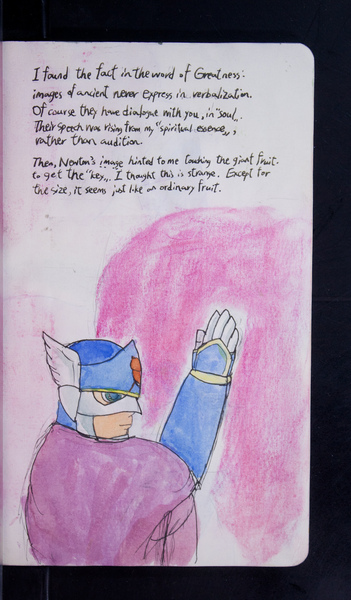 I found the fact in the word of Greatness:
images of ancient never express in verbalization.
Of course they have dialogue with you, in "soul".
Their speech was rising from my "spiritual essence",
rather than audition.
Then, Newton's image hinted to me touching the giant fruit.
to get the "key". I thought this is strange. Except for
the size, it seems just like an ordinary fruit.